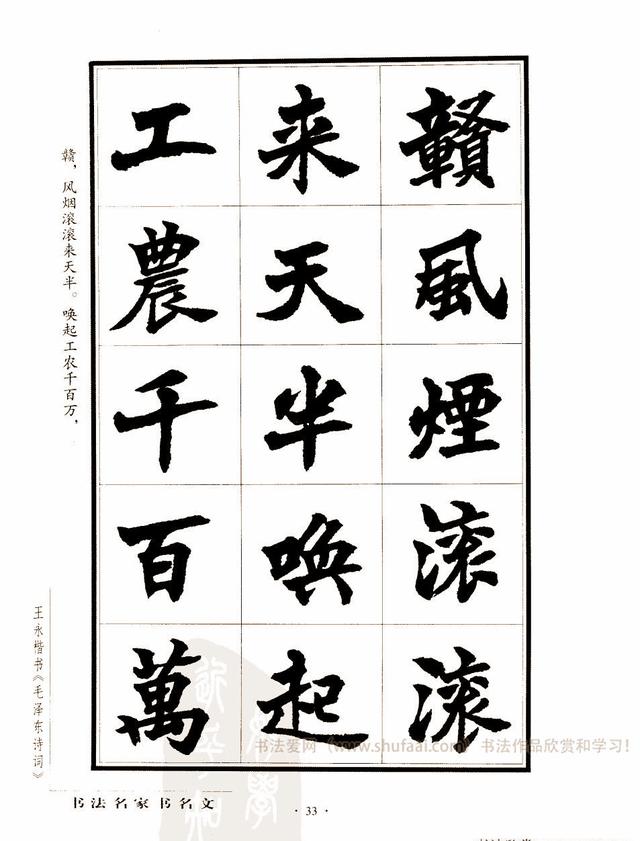 贛風煙滚滚
来天半唤起
工農千百萬
赣，风烟滚滚来天半。唤起工农千百万，
王永楷书《毛泽东诗词》
书法名家书名文
· 33 ·
书法爱网（www.shufaai.com）书法作品欣赏和学习！